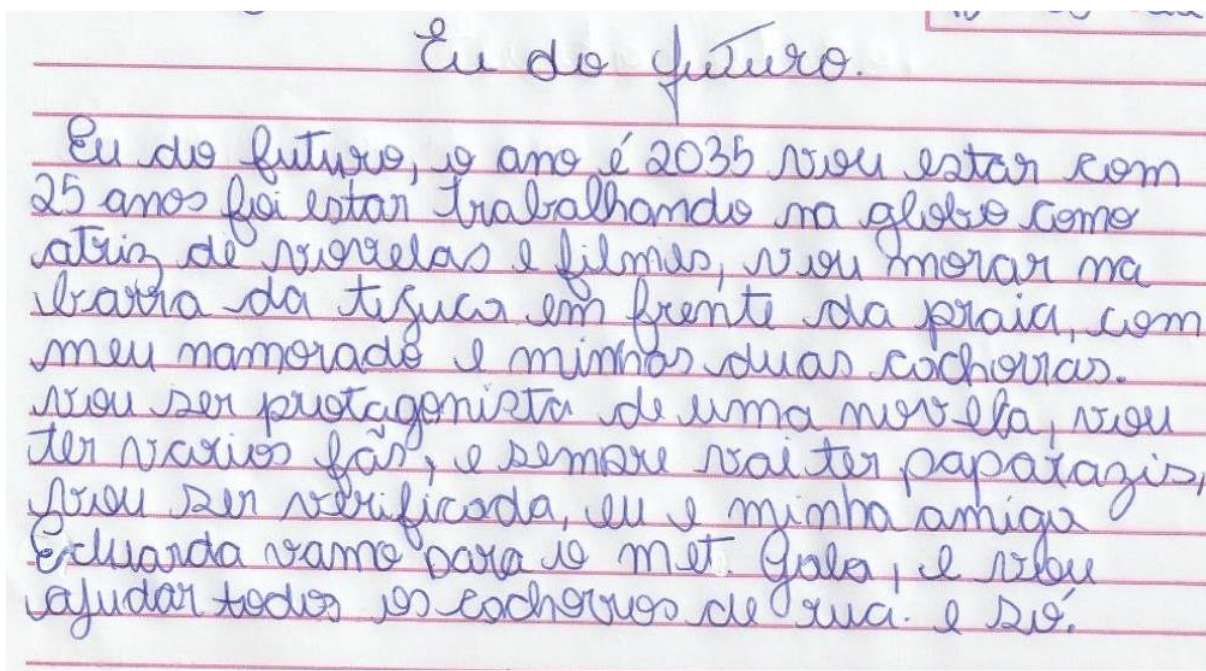 Eu do futuro.
Eu do futuro, o ano é 2035 vou estar com
25 anos foi estar trabalhando na globo como
atriz de novelas e filmes, vou morar na
barra da tijuca em frente da praia, com
meu namorado e minhas duas cachorras.
vou ser protagonista de uma novela, vou
ter varios fãs, e sempre vai ter paparazis,
vou ser verificada, eu e minha amiga
Eduarda vamo para o met Gala, e vou
ajudar todos os cachorros de rua. e só.